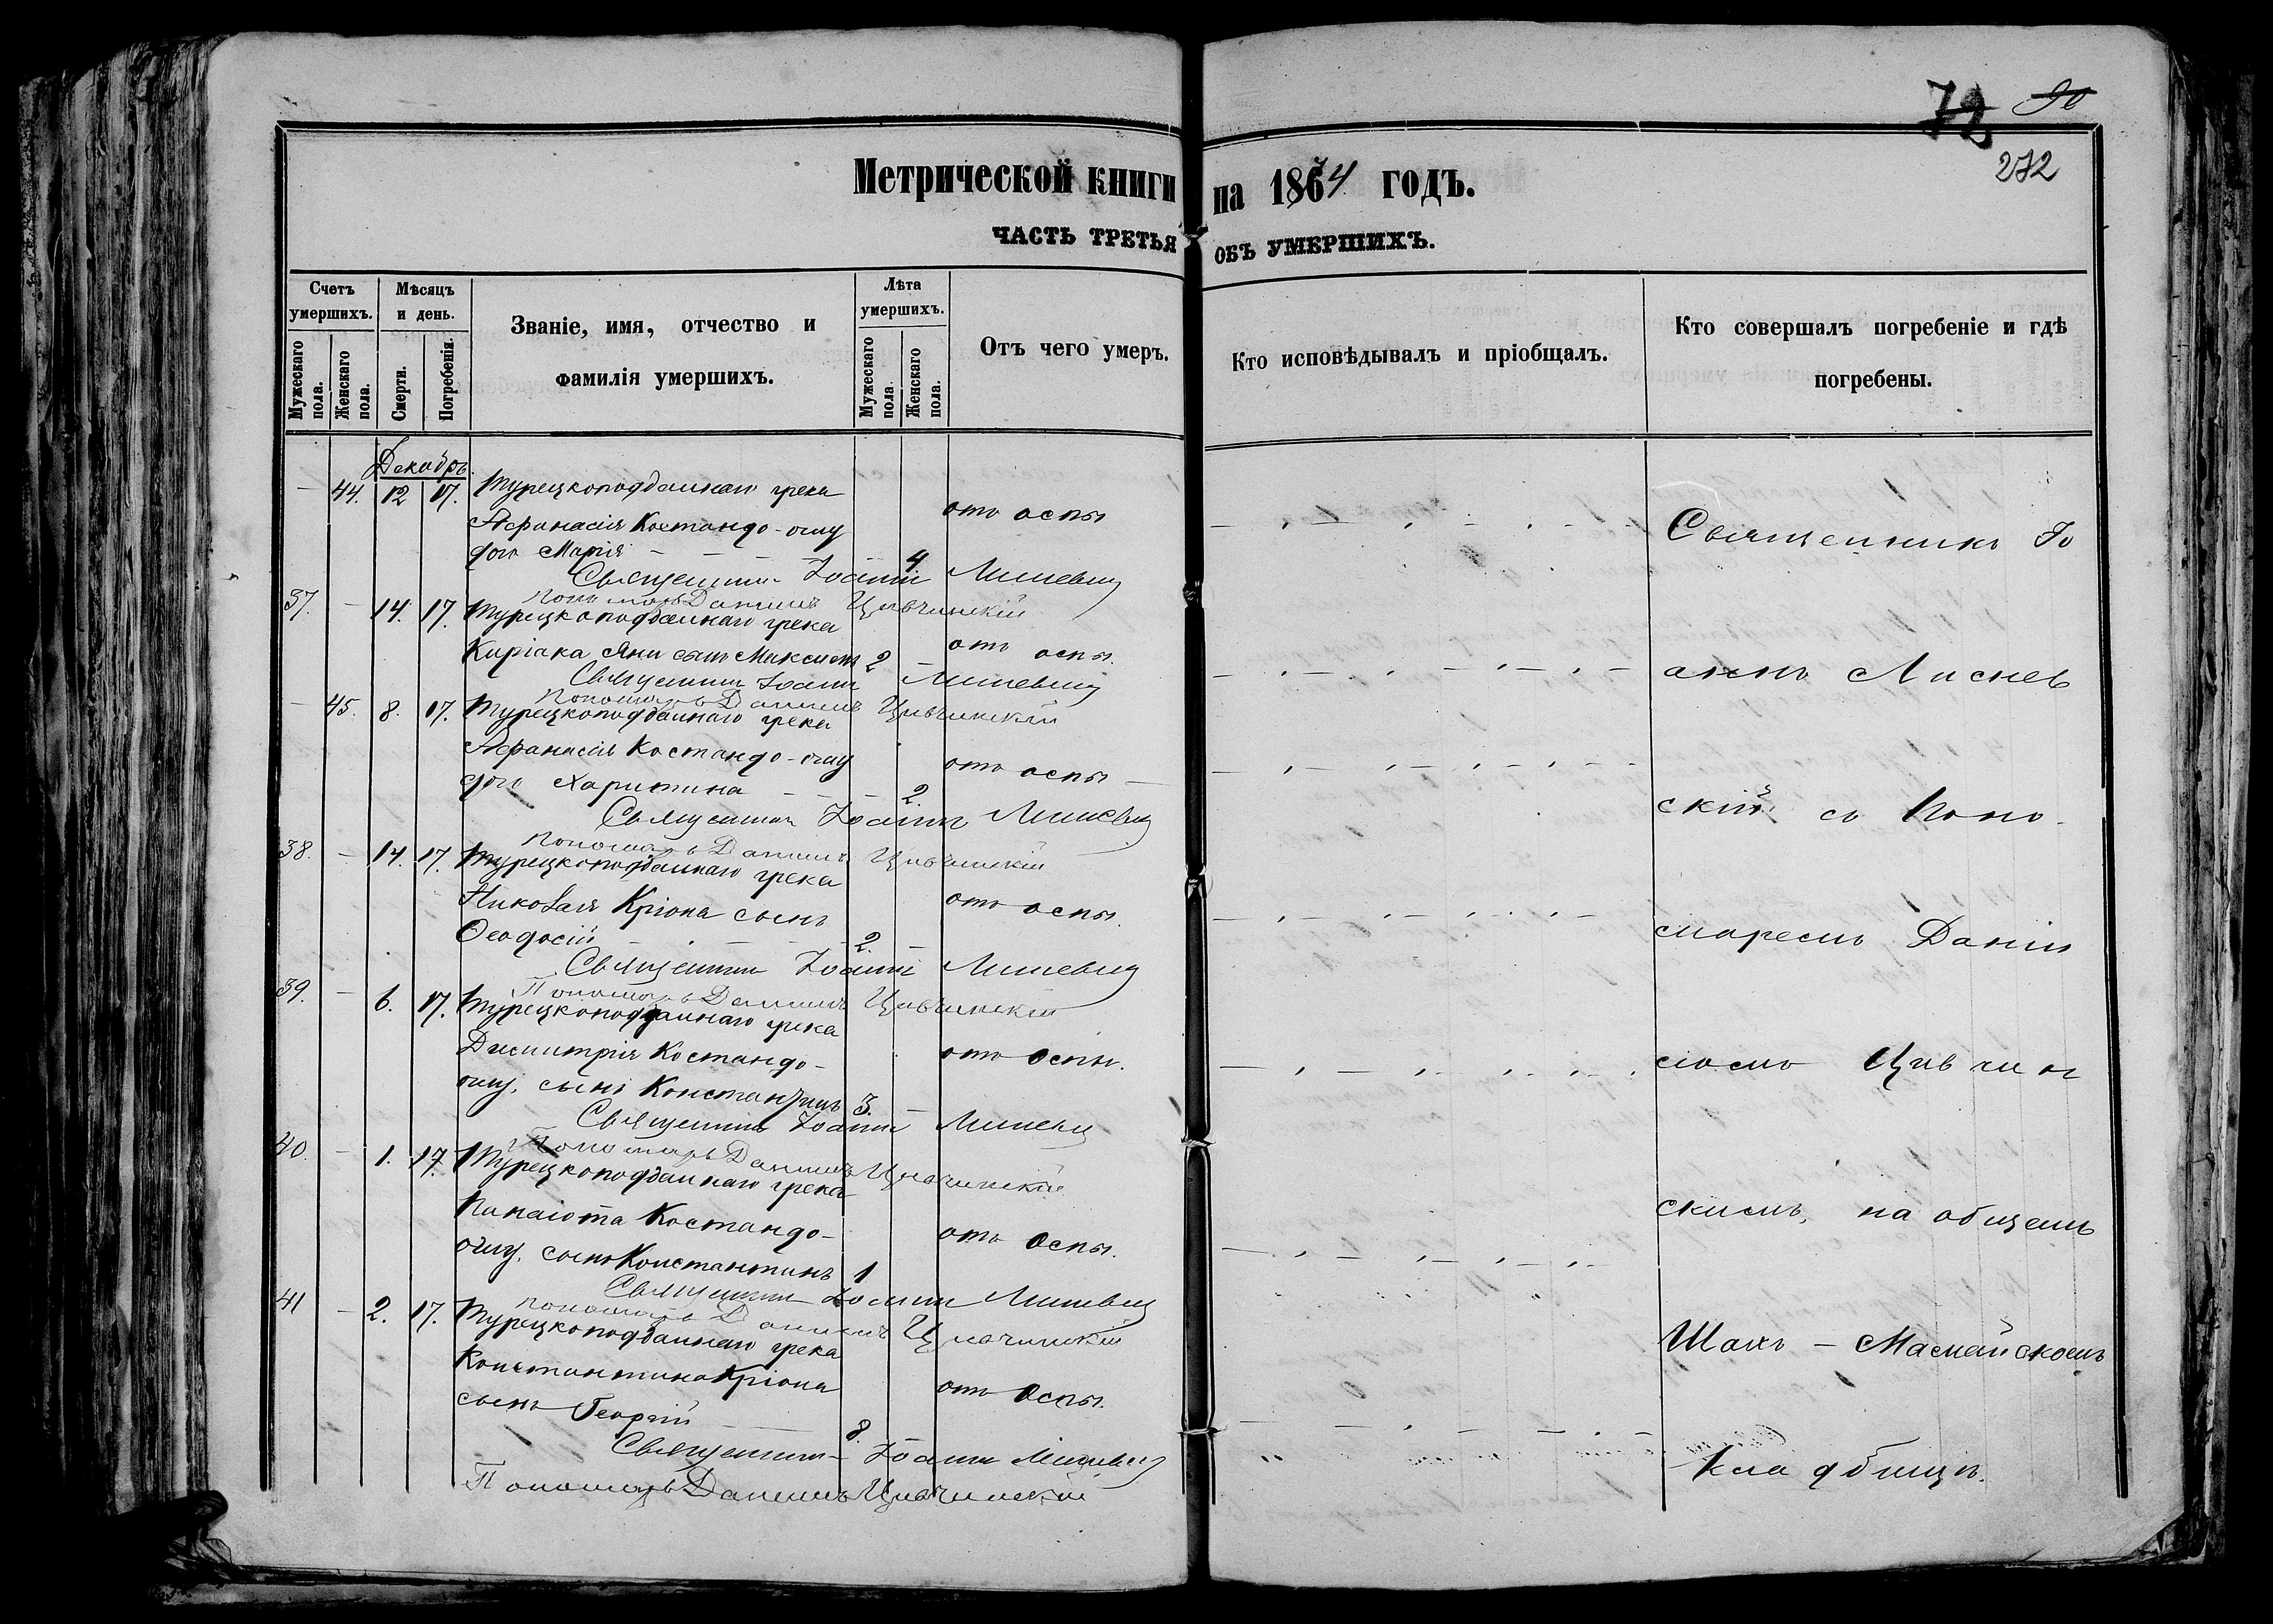 72 90
272
Метрической книги на 1864 годъ.
ЧАСТЬ ТРЕТЬЯ ОБЪ УМЕРШИХЪ.
Счетъ умершихъ.
Мужескаго пола.
Женскаго пола.
Мѣсяцъ и день.
Смерти.
Погребенія.
Званіе, имя, отчество и
фамилія умершихъ.
Лѣта умершихъ.
Мужескаго пола.
Женскаго пола.
Отъ чего умеръ.
Кто исповѣдывалъ и пріобщалъ.
Кто совершалъ погребеніе и гдѣ
погребены.
Декабрь.
— 44. 12 17. Турецкоподданнаго грека
Афанасія Костандо-оглу отъ оспы
дочь Марія 4
Священникъ Іоаннъ Лисневскій
Пономарь Даніилъ Цивчинскій
37. — 14. 17. Турецкоподданнаго грека
Киріака Яни сынъ Максимъ 2 — отъ оспы.
Священникъ Іоаннъ Лисневскій
Пономарь Даніилъ Цивчинскій
— 45. 8. 17. Турецкоподданнаго грека
Афанасія Костандо-оглу отъ оспы —
дочь Харитина 2.
Священникъ Іоаннъ Лисневскій
Пономарь Даніилъ Цивчинскій
38. — 14. 17. Турецкоподданнаго грека
Николая Кріона сынъ отъ оспы.
Ѳеодосій 2. —
Священникъ Іоаннъ Лисневскій
Пономарь Даніилъ Цивчинскій
39. — 6. 17. Турецкоподданнаго грека
Димитрія Костандо- отъ оспы.
оглу, сынъ Константинъ 3. —
Священникъ Іоаннъ Лисневскій
Пономарь Даніилъ Цивчинскій
40. — 1. 17. Турецкоподданнаго грека
Панаіота Костандо- отъ оспы.
оглу, сынъ Константинъ 1
Священникъ Іоаннъ Лисневскій
Пономарь Даніилъ Цивчинскій
41 — 2. 17. Турецкоподданнаго грека
Константина Кріона отъ оспы.
сынъ Георгій 8.
Священникъ Іоаннъ Лисневскій
Пономарь Даніилъ Цивчинскій
Священникъ Іо
аннъ Лиснев
скій съ Поно-
маремъ Даніи
ломъ Цивчин
скимъ, на общемъ
Шахъ-Мамайскомъ
кладбищѣ.